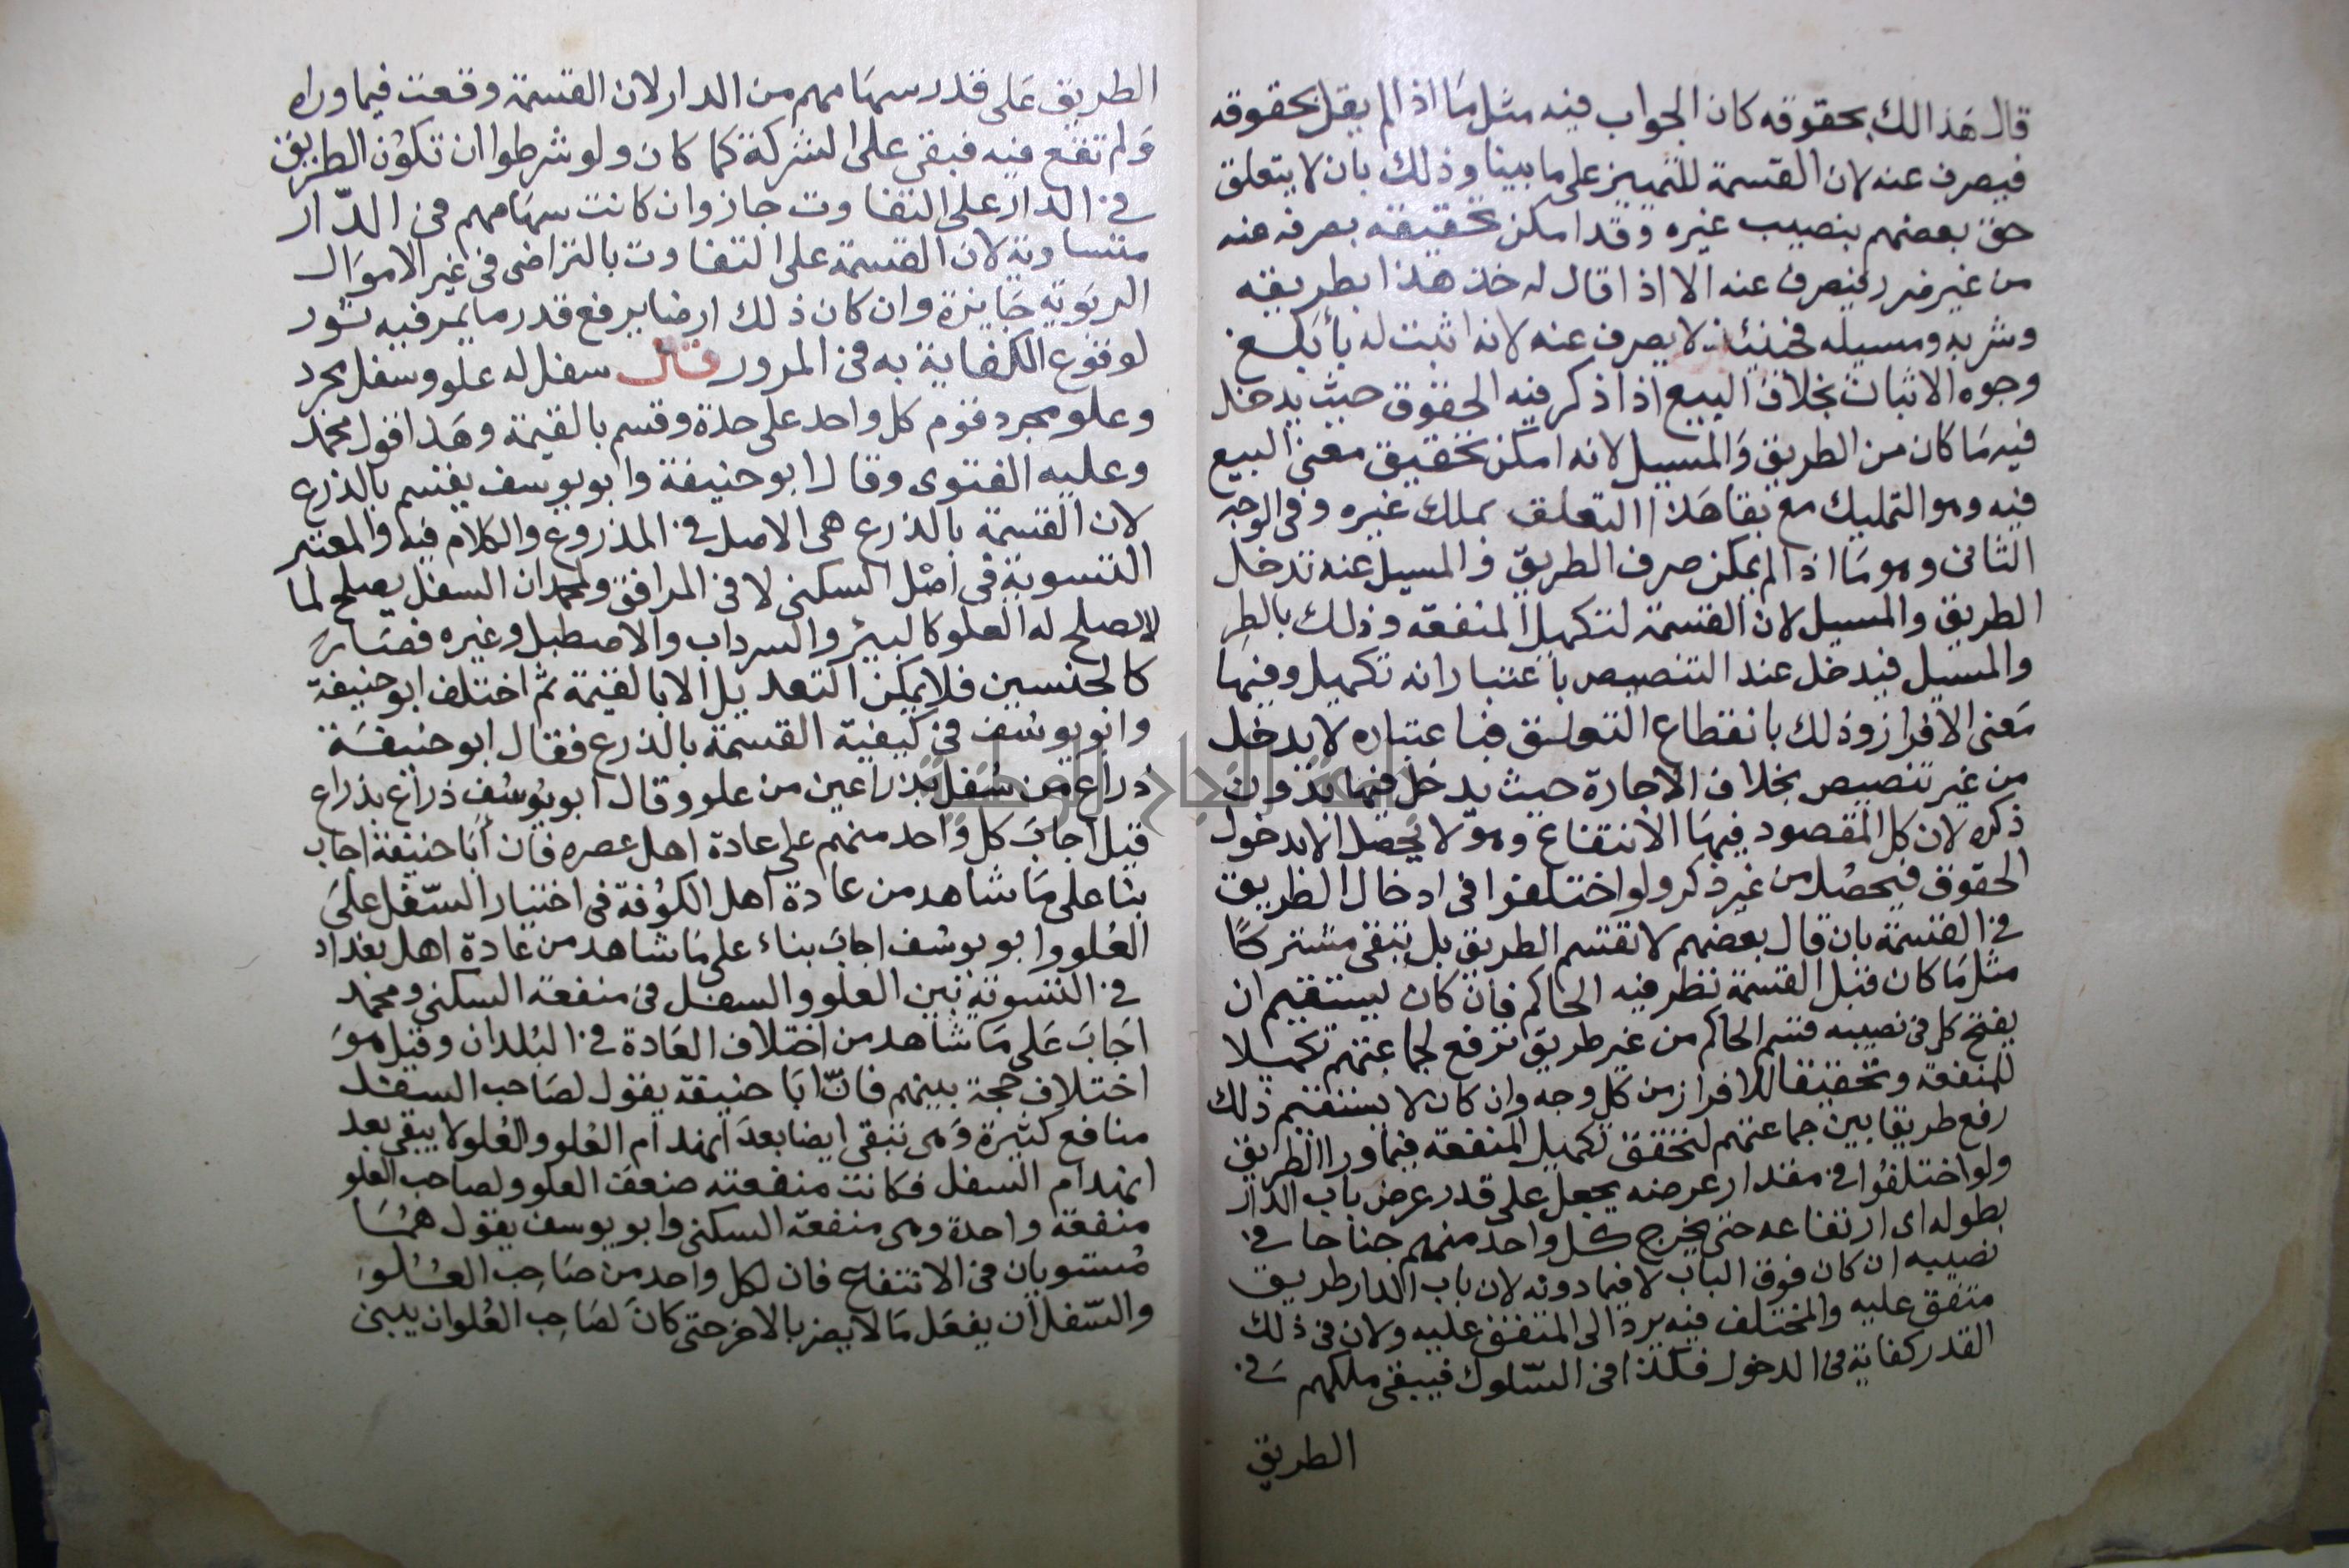 قال هذا لك بحقوقه كان الجواب فيه مثل ما اذا لم يقل بحقوقه
فيصرف عنه لان القسمة للتمييز على ما بينا وذلك بان لا يتعلق
حق بعضهم بنصيب غيره وقد امكن تحقيقه بصرفه عنه
من غير ضرر فيصرف عنه الا اذا قال له خذ هذا بطريقه
وشربه ومسيله فحينئذ لا يصرف عنه لانه اثبت له بأبلغ
وجوه الاثبات بخلاف البيع اذا ذكر فيه الحقوق حيث يدخل
فيه ما كان من الطريق والمسيل لانه امكن تحقيق معنى البيع
فيه وهو التمليك مع بقا هذا التعلق بملك غيره وفى الوجه
الثانى وهو ما اذا لم يمكن صرف الطريق والمسيل عنه تدخل
الطريق والمسيل لان القسمة لتكميل المنفعة وذلك بالطر
والمسيل فيدخل عند التنصيص باعتبار انه تكميل وفيها
معنى الافراز وذلك بانقطاع التعلق فباعتباره لا يدخل
من غير تنصيص بخلاف الاجارة حيث يدخل فيها بدون
ذكره لان كل المقصود فيها الانتفاع وهو لا يحصل الا بدخول
الحقوق فيحصل من غير ذكر ولو اختلفوا فى ادخال الطريق
فى القسمة بان قال بعضهم لا تقتسم الطريق بل تبقى مشتركا
مثل ما كان قبل القسمة نظر فيه الحاكم فان كان يستقيم ان
يفتح كل فى نصيبه قسم الحاكم من غير طريق ترفع لجماعتهم تكميلا
للمنفعة وتحقيقا للافراز من كل وجه وان كان لا يستقيم ذلك
رفع طريقا بين جماعتهم لتحقق تكميل المنفعة فيما ورا الطريق
ولو اختلفوا فى مقدار عرضه يجعل على قدر عرض باب الدار
بطوله اى ارتفاعه حتى يخرج كل واحد منهم جناحا فى
نصيبه ان كان فوق الباب لا فيما دونه لان باب الدار طريق
متفق عليه والمختلف فيه يرد الى المتفق عليه ولان فى ذلك
القدر كفاية فى الدخول فكذا فى السلوك فيبقى ملكهم فى
الطريق
الطريق على قدر سهامهم من الدار لان القسمة وقعت فيما وراه
ولم تقع فيه فبقى على الشركة كما كان ولو شرطوا ان تكون الطريق
فى الدار على التفاوت جاز وان كانت سهامهم فى الدار
متساوية لان القسمة على التفاوت بالتراضى فى غير الاموال
الربوية جايزة وان كان ذلك ارضا يرفع قدر ما يمر فيه ثور
لوقوع الكفاية به فى المرور قال سفل له علو وسفل مجرد
وعلو مجرد قوم كل واحد على حدة وقسم بالقيمة وهذا قول محمد
وعليه الفتوى وقال ابو حنيفة وابو يوسف يقسم بالذرع
لان القسمة بالذرع هى الاصل فى المذروع والكلام فيه والمعتبر
التسوية فى اصل السكنى لا فى المرافق ولمحمد ان السفل يصلح لما
لا يصلح له العلو كالبئر والسرداب والاصطبل وغيره فصار
كالجنسين فلا يمكن التعديل الا بالقيمة ثم اختلف ابو حنيفة
وابو يوسف فى كيفية القسمة بالذرع فقال ابو حنيفة
ذراع من سفل بذراعين من علو وقال ابو يوسف ذراع بذراع
قيل اجاب كل واحد منهم على عادة اهل عصره فان أبا حنيفة اجاب
بنا على ما شاهد من عادة اهل الكوفة فى اختيار السفل على
العلو وابو يوسف اجاب بناء على ما شاهد من عادة اهل بغداد
فى التسوية بين العلو والسفل فى منفعة السكنى ومحمد
اجاب على ما شاهد من اختلاف العادة فى البلدان وقيل هو
اختلاف حجة بينهم فان ابا حنيفة يقول لصاحب السفل
منافع كثيرة وهى تبقى ايضا بعد انهدام العلو والعلو لا يبقى بعد
انهدام السفل فكانت منفعته ضعف العلو ولصاحب العلو
منفعة واحدة وهى منفعة السكنى وابو يوسف يقول هما
مستويان فى الانتفاع فان لكل واحد من صاحب العلو
والسفل ان يفعل ما لا يضر بالاخر حتى كان لصاحب العلو ان يبنى
جامعة النجاح الوطنية